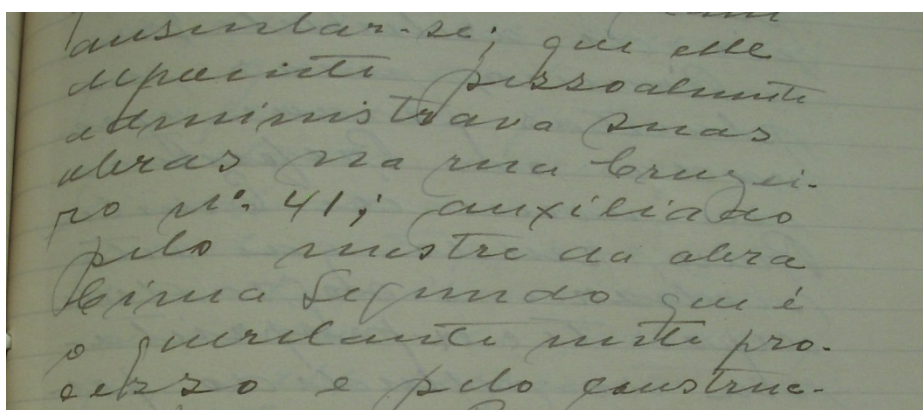 ausentar-se; que elle
depoente pessoalmente
administrava suas
obras na rua Cruzei-
ro nº. 41; auxiliado
pelo mestre da obra
Cima Segundo que é
o querelante neste pro-
cesso e pelo construc-